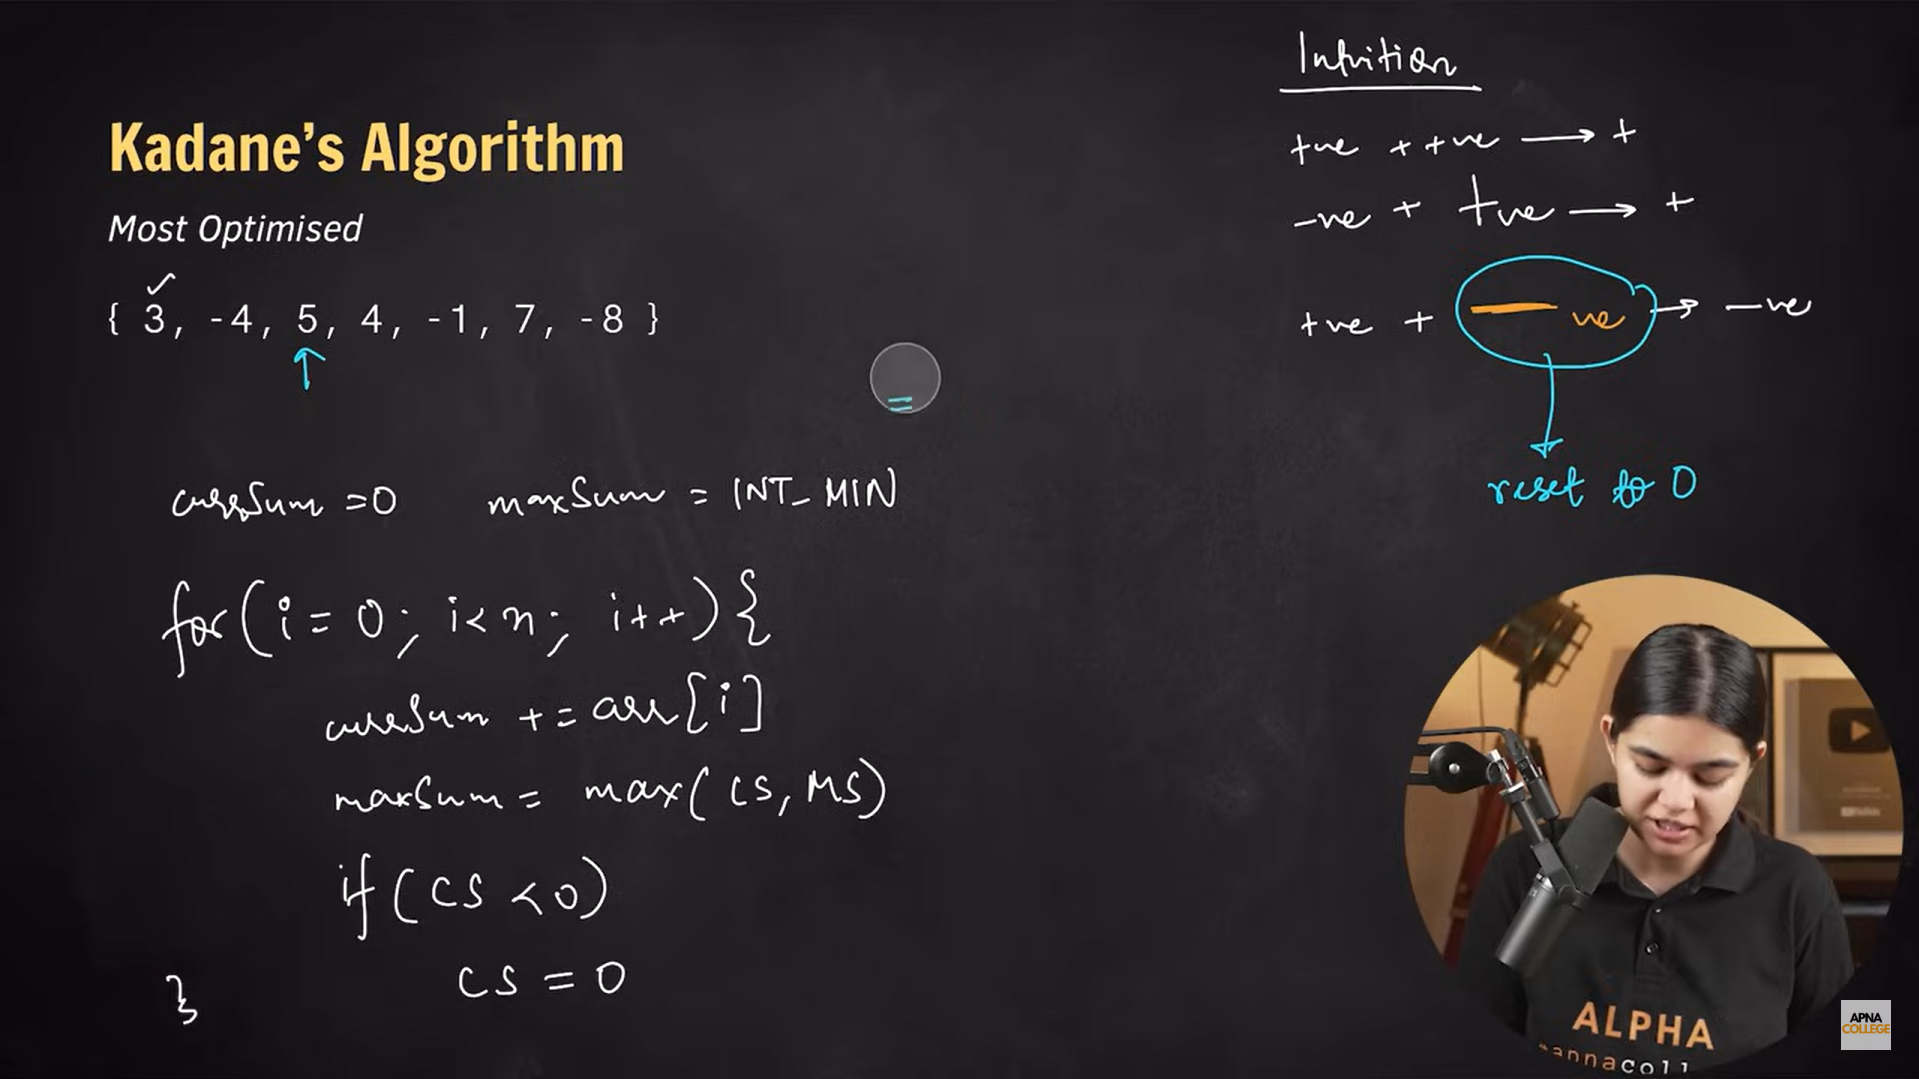 Kadane's Algorithm
Most Optimised
{ 3, -4, 5, 4, -1, 7, -8 }
currSum = 0 maxSum = INT_MIN
for(i = 0; i < n; i++){
currSum += arr[i]
maxSum = max(CS, MS)
if(CS < 0)
CS = 0
}
Intuition
+ve + +ve → +
-ve + +ve → +
+ve + -ve → -ve
reset to 0
ALPHA
APNA
COLLEGE